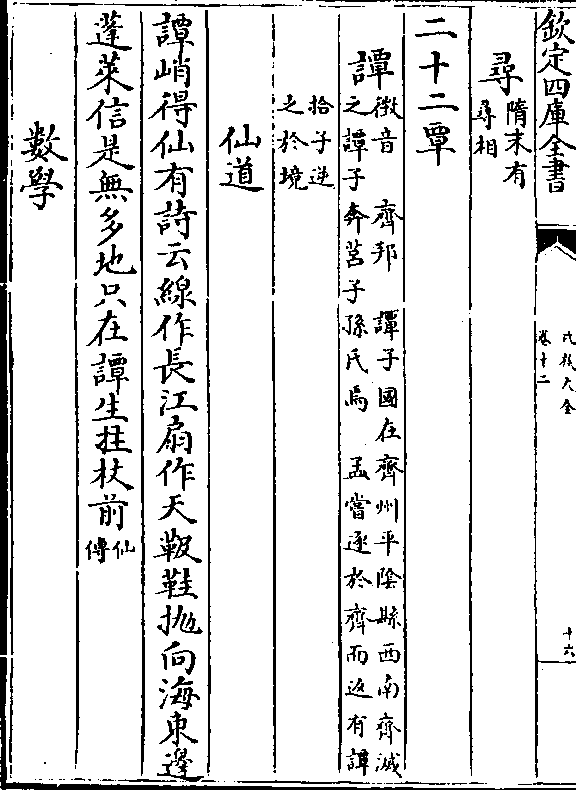 欽定四庫全書
氏族大全
卷十二
十六
尋
隋末有
尋相
二十二覃
譚
徵音　齊邦　譚子國在齊州平陰縣西南齊滅
之譚子奔莒子孫氏焉　孟嘗逐於齊而返有譚
拾子逆
之於境
仙道
譚峭得仙有詩云線作長江扇作天靸鞋抛向海東邊
蓬萊信是無多地只在譚生拄杖前
仙
傳
數學